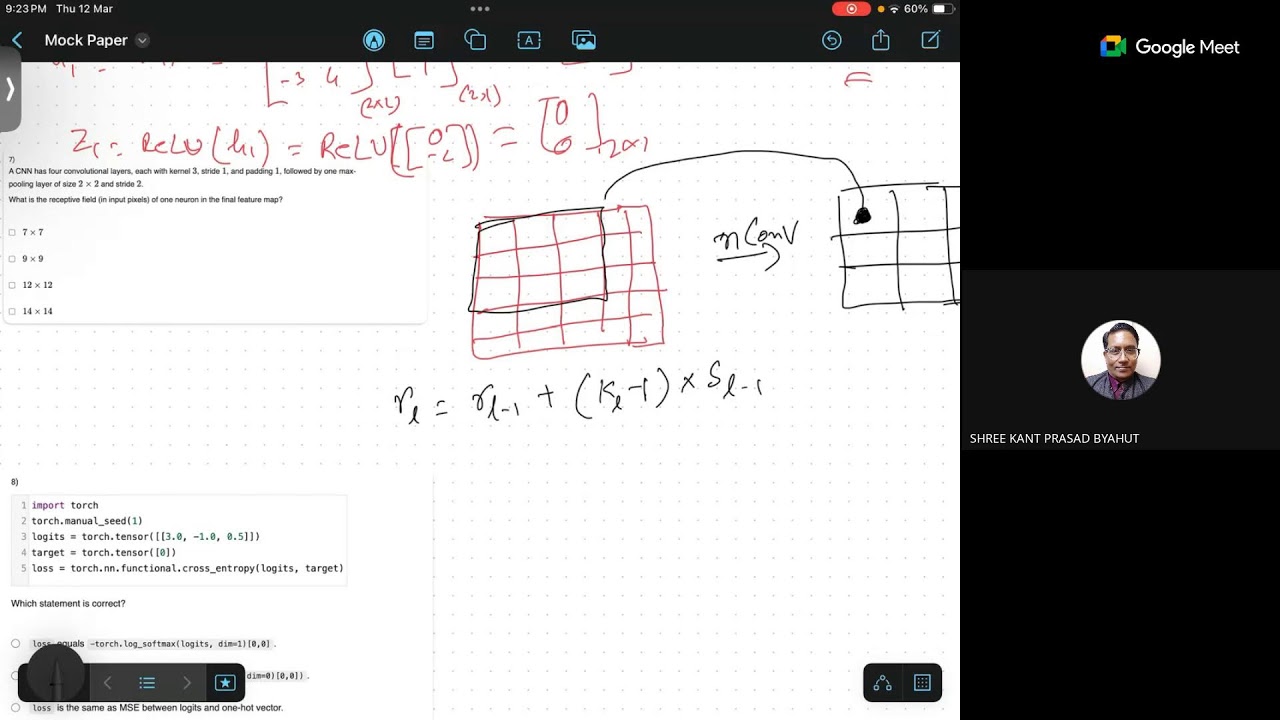 9:23 PM Thu 12 Mar
60%
Mock Paper
Google Meet
-3 4
(2x2) (2x1)
Z1 = ReLU(h1) = ReLU([0 -2]) = [0 0]2x1
7)
A CNN has four convolutional layers, each with kernel 3, stride 1, and padding 1, followed by one max-
pooling layer of size 2 × 2 and stride 2.
What is the receptive field (in input pixels) of one neuron in the final feature map?
7 × 7
9 × 9
12 × 12
14 × 14
n Conv
rl = rl-1 + (Kl-1) × Sl-1
SHREE KANT PRASAD BYAHUT
8)
1 import torch
2 torch.manual_seed(1)
3 logits = torch.tensor([[3.0, -1.0, 0.5]])
4 target = torch.tensor([0])
5 loss = torch.nn.functional.cross_entropy(logits, target)
Which statement is correct?
loss equals -torch.log_softmax(logits, dim=1)[0,0].
dim=0)[0,0]).
loss is the same as MSE between logits and one-hot vector.